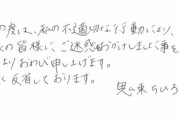 の度は、私の不適切な行動により、
くの皆様に、ご迷惑おかけしました事を
よりおわび申し上げます。
く反省しております。
東ちひろ